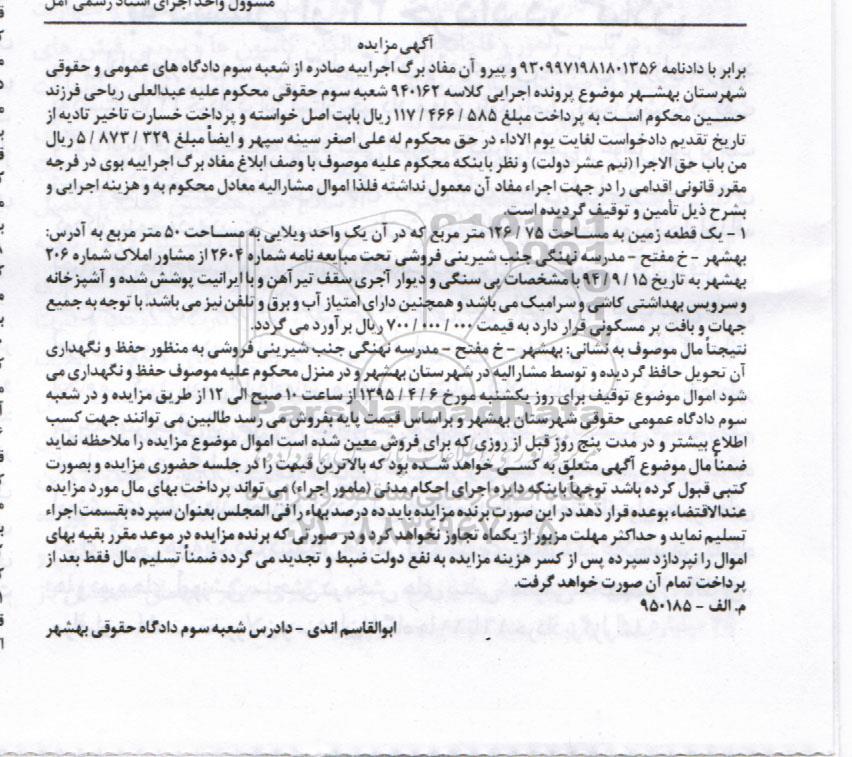 مسوول واحد اجرای اسناد رسمی آمل
آگهی مزایده
برابر با دادنامه ۹۳۰۹۹۷۱۹۸۱۸۰۱۳۵۶ و پیرو آن مفاد برگ اجراییه صادره از شعبه سوم دادگاه های عمومی و حقوقی
شهرستان بهشهر موضوع پرونده اجرایی کلاسه ۹۴۰۱۶۲ شعبه سوم حقوقی محکوم علیه عبدالعلی ریاحی فرزند
حسین محکوم است به پرداخت مبلغ ۵۸۵ / ۴۶۶ / ۱۱۷ ریال بابت اصل خواسته و پرداخت خسارت تاخیر تادیه از
تاریخ تقدیم دادخواست لغایت یوم الاداء در حق محکوم له علی اصغر سینه سپهر و ایضاً مبلغ ۳۲۹ / ۸۷۳ / ۵ ریال
من باب حق الاجرا (نیم عشر دولت) و نظر باینکه محکوم علیه موصوف با وصف ابلاغ مفاد برگ اجراییه بوی در فرجه
مقرر قانونی اقدامی را در جهت اجراء مفاد آن معمول نداشته فلذا اموال مشارالیه معادل محکوم به و هزینه اجرایی و
بشرح ذیل تأمین و توقیف گردیده است.
۱- یک قطعه زمین به مساحت ۷۵ / ۱۲۶ متر مربع که در آن یک واحد ویلایی به مساحت ۵۰ متر مربع به آدرس:
بهشهر - خ مفتح - مدرسه نهنگی جنب شیرینی فروشی تحت مبایعه نامه شماره ۲۶۰۴ از مشاور املاک شماره ۲۰۶
بهشهر به تاریخ ۱۵ / ۹ / ۹۲ با مشخصات پی سنگی و دیوار آجری، سقف تیر آهن و با ایرانیت پوشش شده و آشپزخانه
و سرویس بهداشتی کاشی و سرامیک می باشد و همچنین دارای امتیاز آب و برق و تلفن نیز می باشد، با توجه به جمیع
جهات و بافت پر مسکونی قرار دارد به قیمت ۰۰۰ / ۰۰۰ / ۷۰۰ ریال بر آورد می گردد.
نتیجتاً مال موصوف به نشانی: بهشهر - خ مفتح - مدرسه نهنگی جنب شیرینی فروشی به منظور حفظ و نگهداری
آن تحویل حافظ گردیده و توسط مشارالیه در شهرستان بهشهر و در منزل محکوم علیه موصوف حفظ و نگهداری می
شود اموال موضوع توقیف برای روز یکشنبه مورخ ۶ / ۴ / ۱۳۹۵ از ساعت ۱۰ صبح الی ۱۲ از طریق مزایده و در شعبه
سوم دادگاه عمومی حقوقی شهرستان بهشهر و براساس قیمت پایه بفروش می رسد طالبین می توانند جهت کسب
اطلاع بیشتر و در مدت پنج روز قبل از روزی که برای فروش معین شده است اموال موضوع مزایده را ملاحظه نماید
ضمناً مال موضوع آگهی متعلق به کسی خواهد شده بود که بالاترین قیمت را در جلسه حضوری مزایده و بصورت
کتبی قبول کرده باشد توجهاً باینکه دایره اجرای احکام مدنی (مامور اجراء) می تواند پرداخت بهای مال مورد مزایده
عندالاقتضاء بوعده قرار دهد در این صورت برنده مزایده باید ده درصد بهاء را فی المجلس بعنوان سپرده به قسمت اجراء
تسلیم نماید و حداکثر مهلت مزبور از یکماه تجاوز نخواهد کرد و در صورتی که برنده مزایده در موعد مقرر بقیه بهای
اموال را نپردازد سپرده پس از کسر هزینه مزایده به نفع دولت ضبط و تجدید می گردد ضمناً تسلیم مال فقط بعد از
پرداخت تمام آن صورت خواهد گرفت.
م. الف - ۹۵۰۱۸۵
ابوالقاسم اندی - دادرس شعبه سوم دادگاه حقوقی بهشهر
ParsNamadData